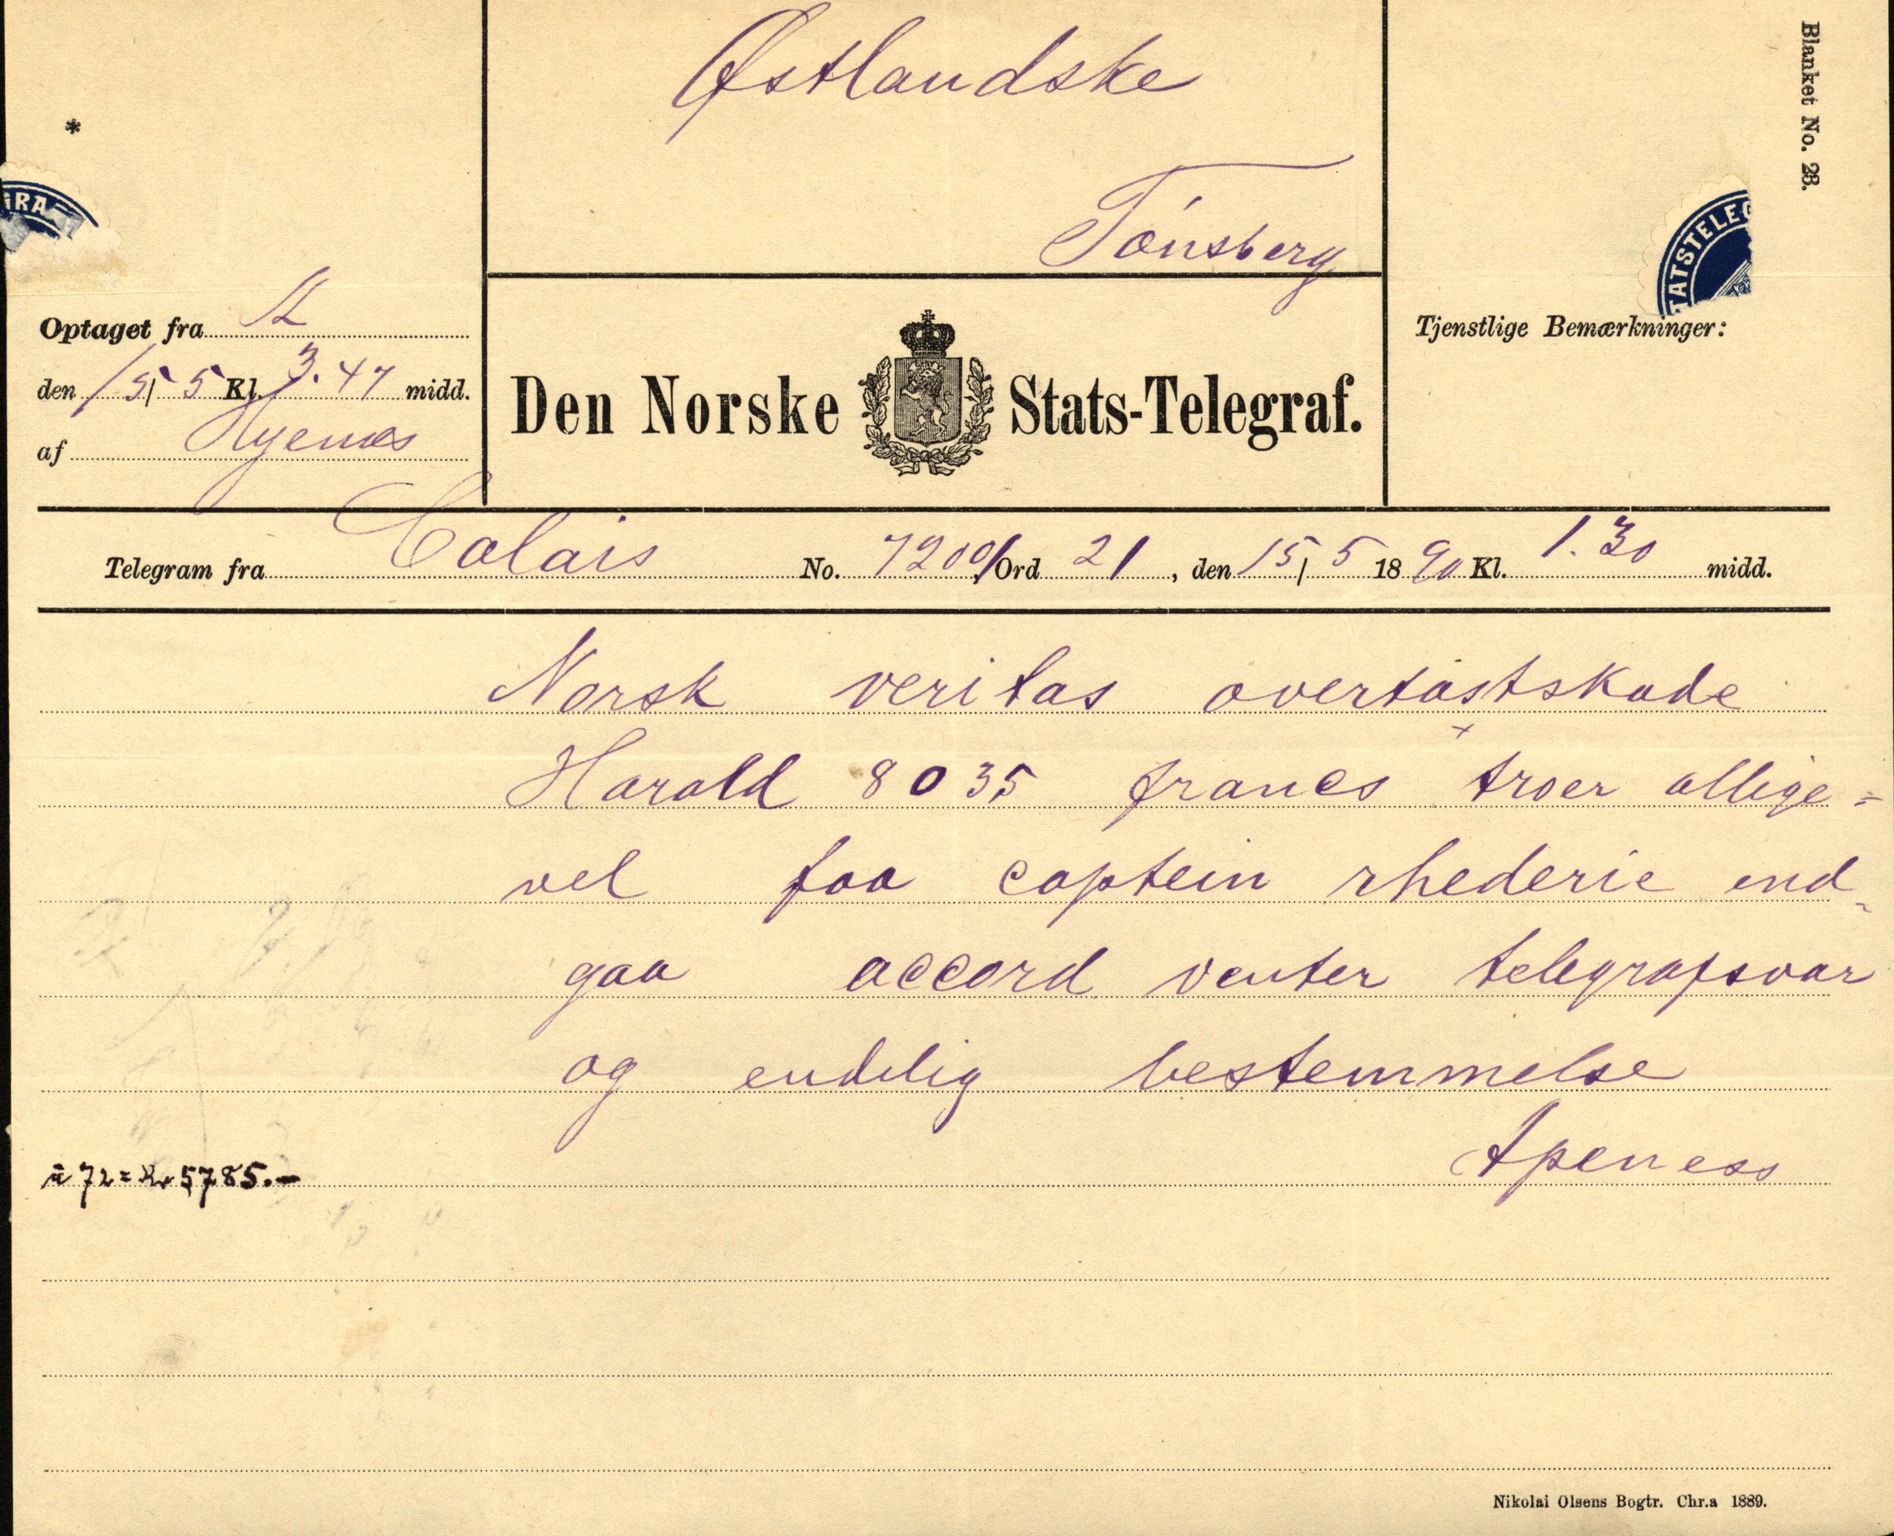 Østlandske
Tønsberg
Blanket No. 28.
*
GRA
TATSTELEG
Optaget fra
den 15/5 Kl. 3.47 midd.
af
Den Norske Stats-Telegraf.
Tjenstlige Bemærkninger:
Telegram fra Calais No. 7200/ Ord 21, den 15/5 1890 Kl. 1.30 midd.
Norsk veritas overtastskade
Harald 8035 francs troer allige=
vel faa captein rhederie end-
gaa accord venter telegrafsvar
og endelig bestemmelse
Apeness
a 72 = Kr 5785.-
Nikolai Olsens Bogtr. Chr.a 1889.